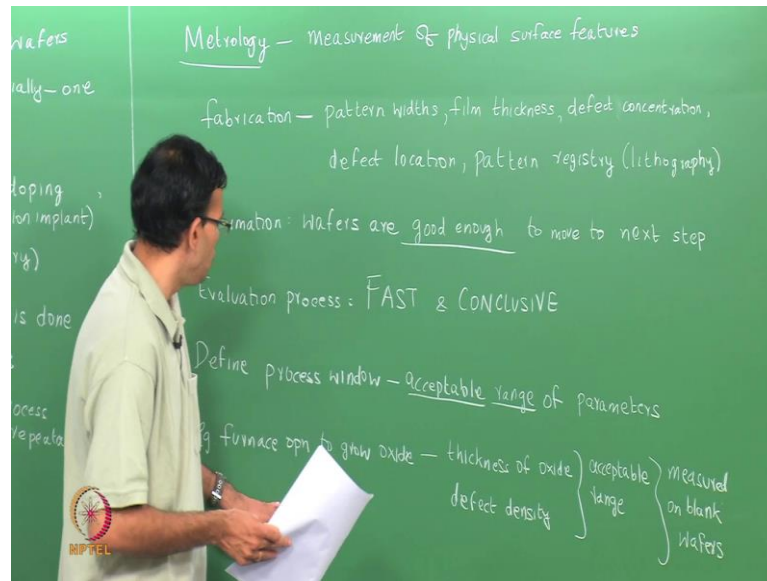 wafers
ially – one
doping,
ion implant)
ry)
is done
ocess
repeata
Metrology – measurement of physical surface features
fabrication – pattern widths, film thickness, defect concentration,
defect location, pattern registry (lithography)
rmation: wafers are good enough to move to next step
Evaluation process: FAST & CONCLUSIVE
Define process window – acceptable range of parameters
Eg furnace opn to grow oxide – thickness of oxide
defect density
acceptable
range
measured
on blank
wafers
NPTEL